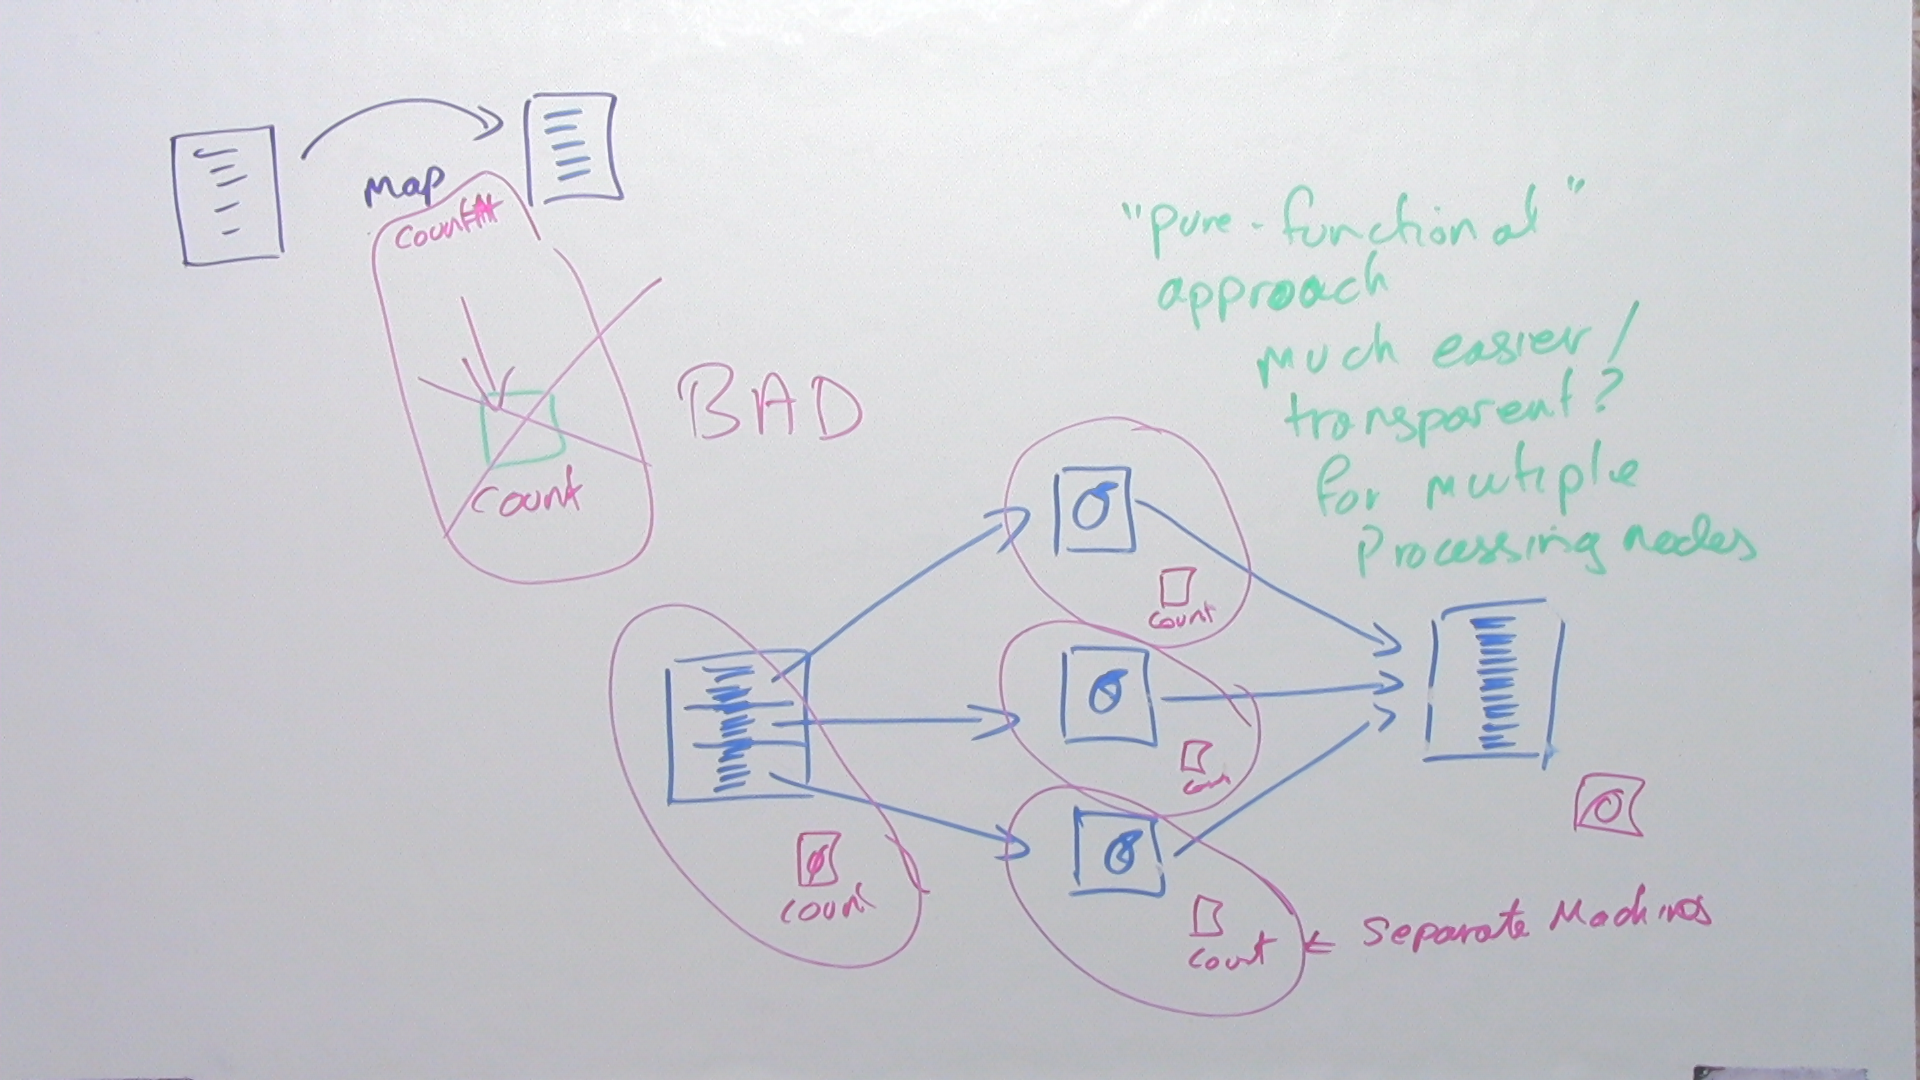 Map
Count++
Count
BAD
"pure-functional"
approach
much easier/
transparent?
for multiple
Processing nodes
Count
Count
Count
Count
← Separate Machines